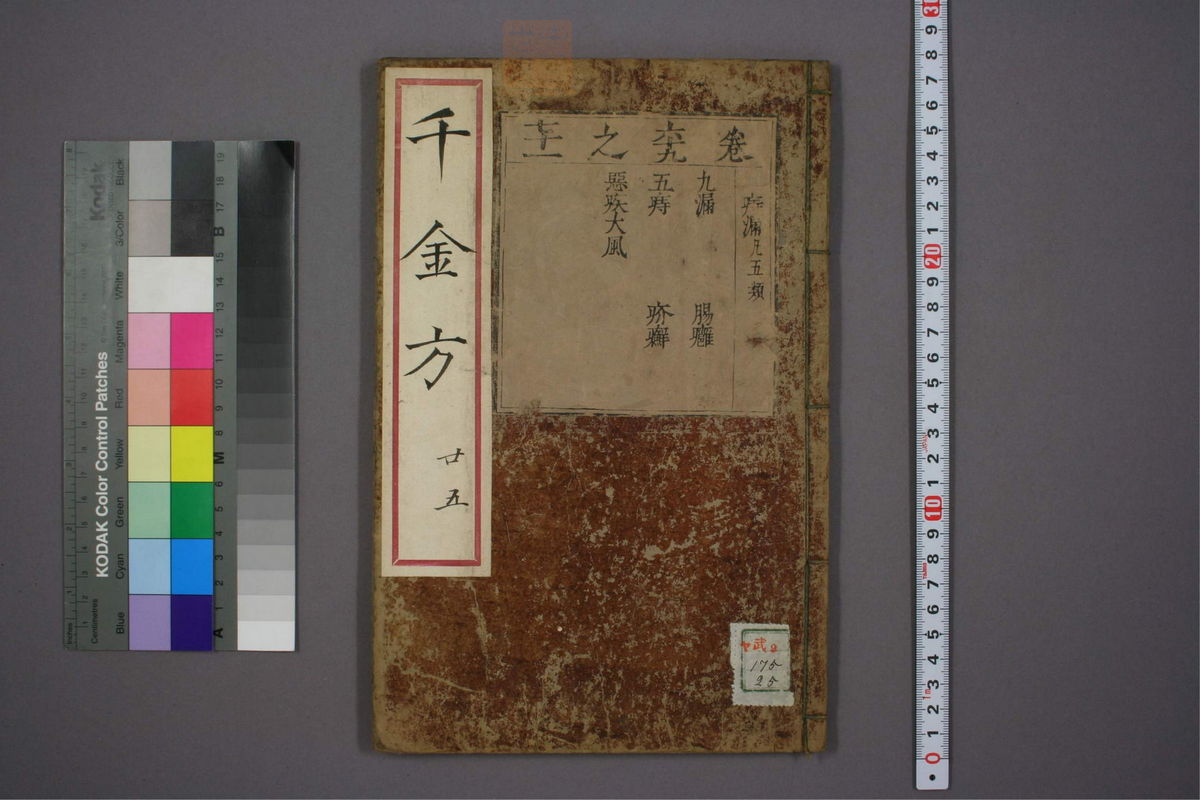 千金方
廿五
卷六十九之七十一
痔漏凡五類
九漏 腸癰
五痔 疥癬
惡疾大風
175
25
KODAK Color Control Patches
Kodak
Inches
Centimetres
Blue Cyan Green Yellow Red Magenta White 3/Color Black
A 1 2 3 4 5 6 M 8 9 10 11 12 13 14 15 B 17 18 19
0 1 2 3 4 5 6 7 8 9 10 1 2 3 4 5 6 7 8 9 20 1 2 3 4 5 6 7 8 9